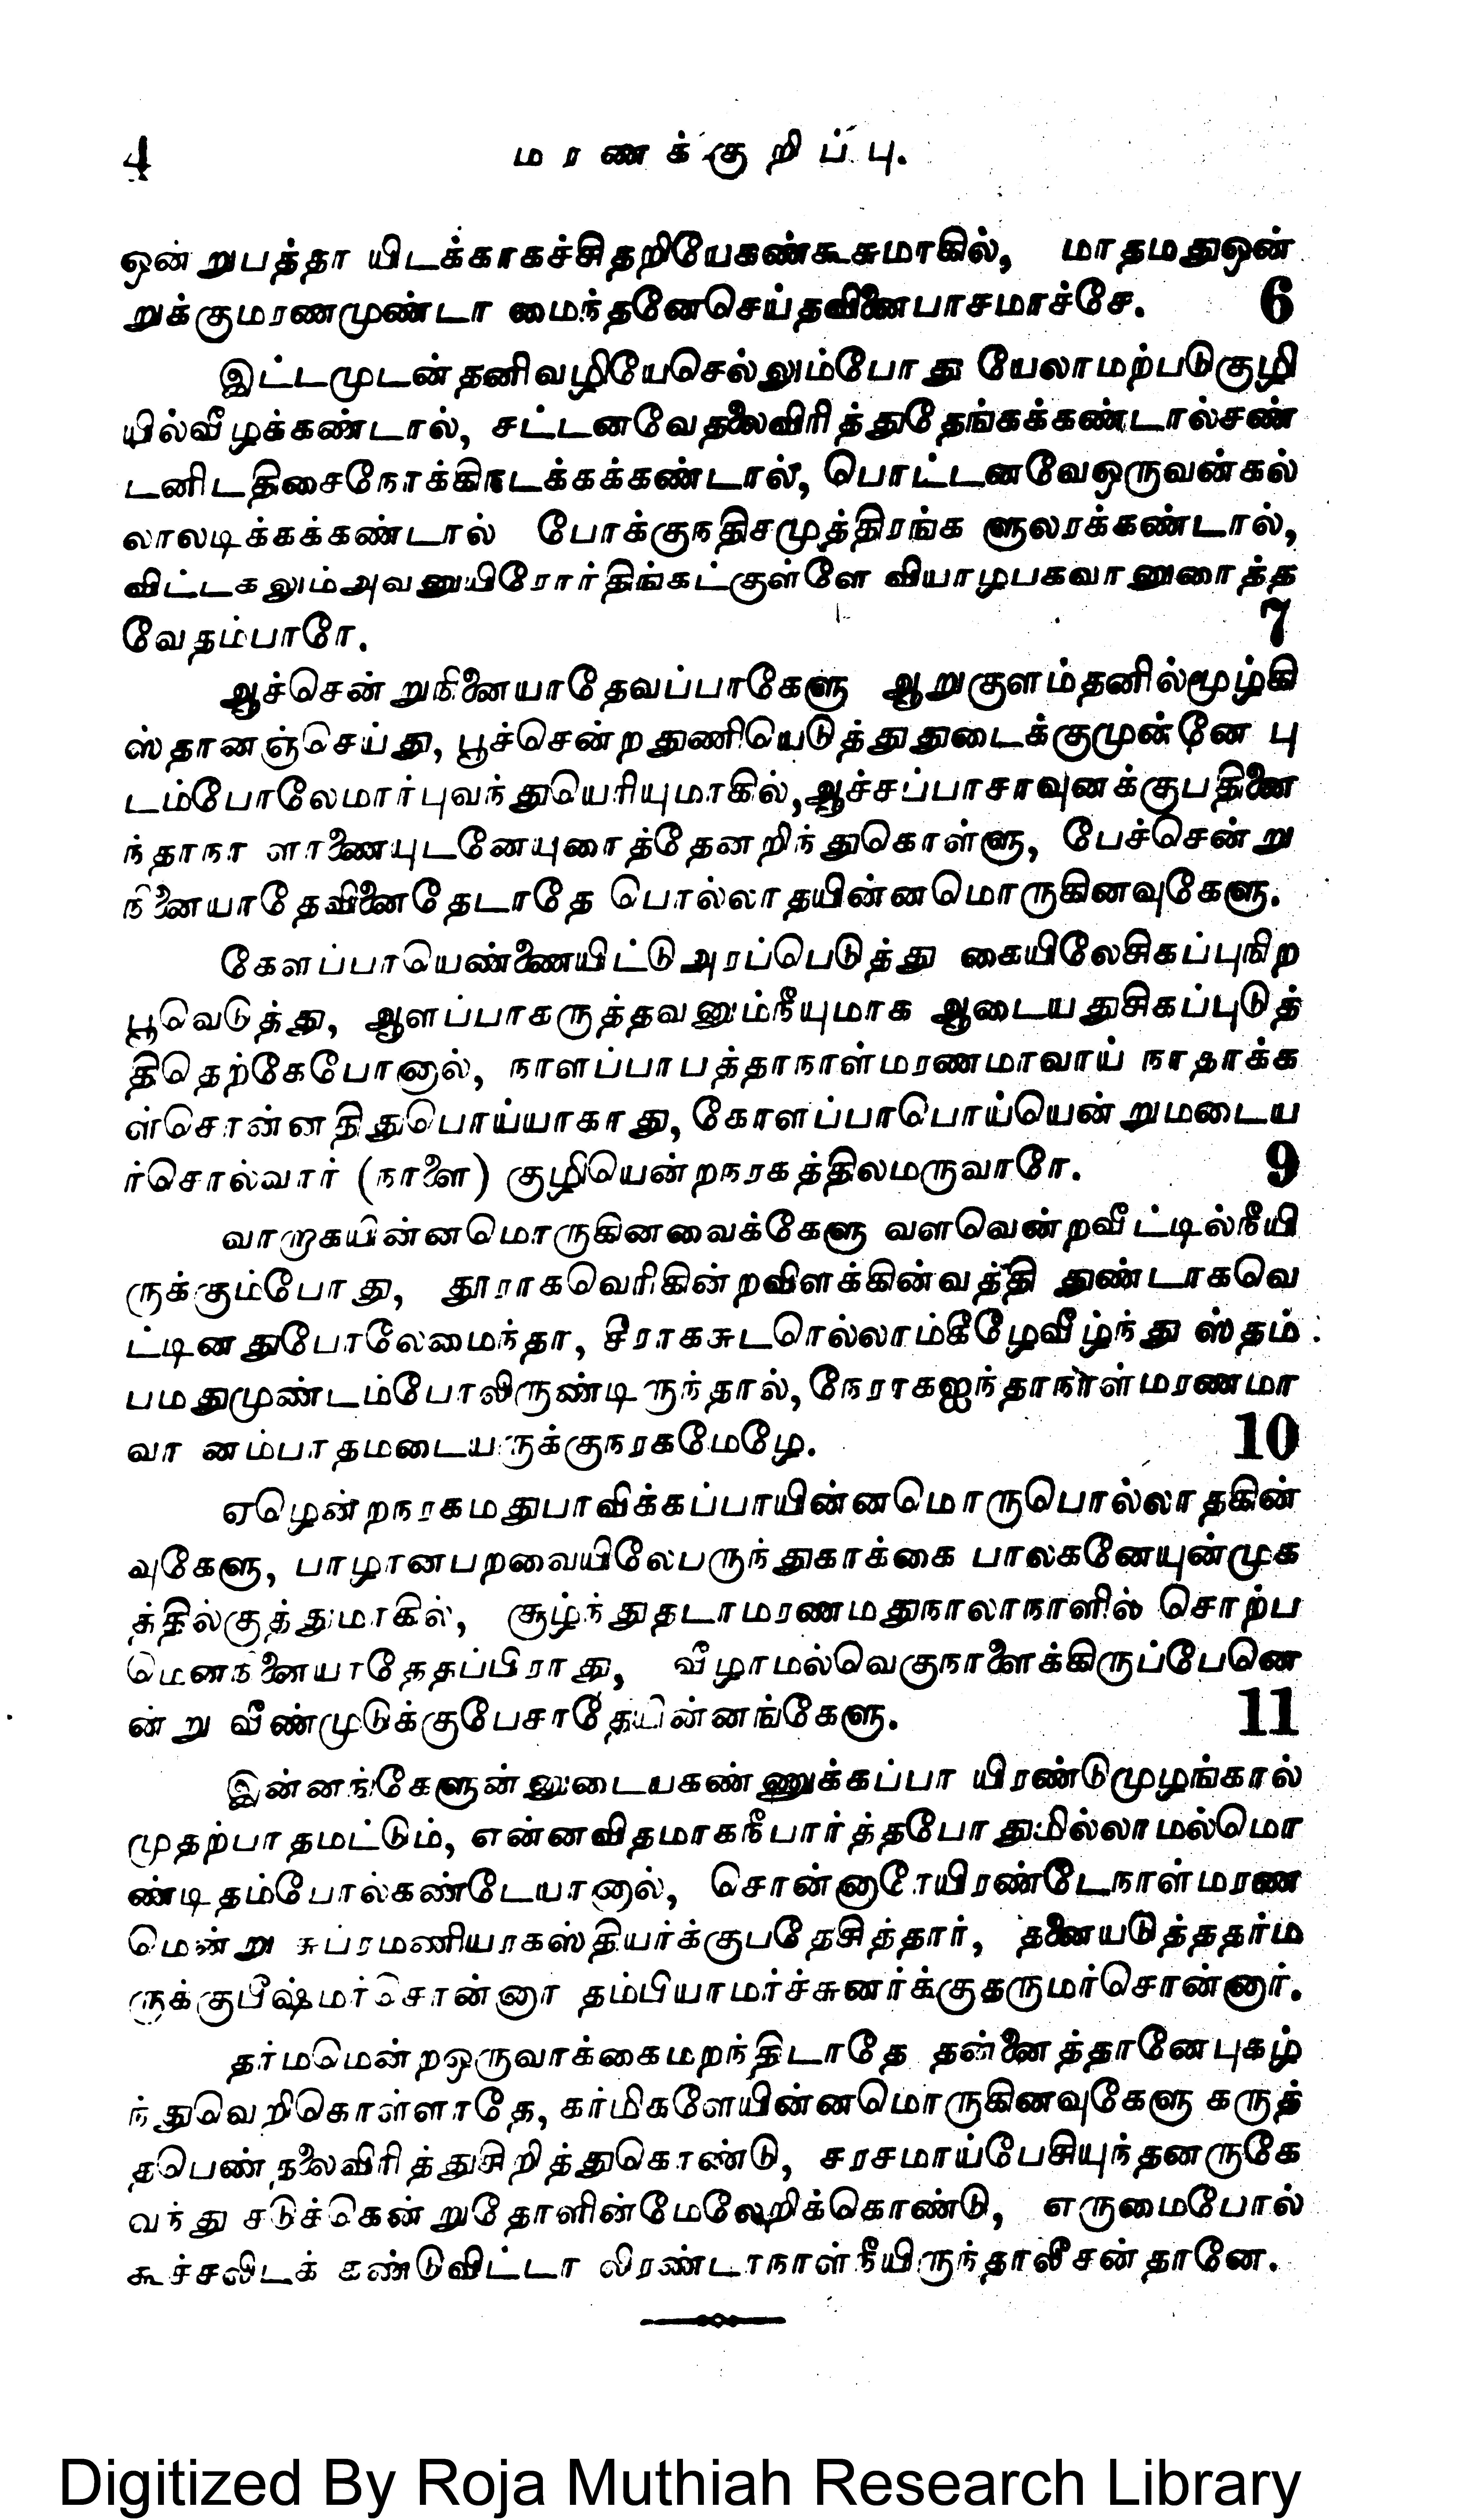 4 மரணக்குறிப்பு.
ஒன்றுபத்தா யிடக்காகச்சிதறியேகண்கூசுமாகில், மாதமதுஒன்
றுக்குமரணமுண்டா மைந்தனேசெய்தவினைபாசமாச்சே. 6
இட்டமுடன்தனிவழியேசெல்லும்போது யேலாமற்படுகுழி
யில்வீழக்கண்டால், சட்டனவேதலைவிரித்துதேங்கக்கண்டால்சண்
டனிடதிசைநோக்கிநடக்கக்கண்டால், பொட்டனவேஒருவன்கல்
லாலடிக்கக்கண்டால் போக்குநதிசமுத்திரங்க ளுலரக்கண்டால்,
விட்டகலும்அவனுயிரோர்திங்கட்குள்ளே வியாழபகவானுரைத்த
வேதம்பாரே. 7
ஆச்சென்றுநினையாதேவப்பாகேளு ஆறுகுளம்தனில்மூழ்கி
ஸ்தானஞ்செய்து, பூச்சென்றதுணியெடுத்துதுடைக்குமுன்னே பு
டம்போலேமார்புவந்துயெரியுமாகில்,ஆச்சப்பாசாவுனக்குபதினை
ந்தாநா ளாணையுடனேயுரைத்தேனறிந்துகொள்ளு, பேச்சென்று
நினையாதேவினைதேடாதே பொல்லாதயின்னமொருகினவுகேளு.
கேளப்பாயெண்ணையிட்டுஅரப்பெடுத்து கையிலேசிகப்புநிற
பூவெடுத்து, ஆளப்பாகருத்தவனும்நீயுமாக ஆடையதுசிகப்புடுத்
திதெற்கேபோனால், நாளப்பாபத்தாநாள்மரணமாவாய் நாதாக்க
ள்சொன்னதிதுபொய்யாகாது, கோளப்பாபொய்யென்றுமடைய
ர்சொல்வார் (நாளை) குழியென்றநரகத்திலமருவாரே. 9
வாறாகயின்னமொருகினவைக்கேளு வளவென்றவீட்டில்நீயி
ருக்கும்போது, தூராகவெரிகின்றவிளக்கின்வத்தி துண்டாகவெ
ட்டினதுபோலேமைந்தா, சீராகசுடரெல்லாம்கீழேவீழ்ந்து ஸ்தம்
பமதுமுண்டம்போலிருண்டிருந்தால், நேராகஐந்தாநாள்மரணமா
வா னம்பாதமடையருக்குநரகமேழே. 10
ஏழென்றநரகமதுபாவிக்கப்பாயின்னமொருபொல்லாதகின்
வுகேளு, பாழானபறவையிலேபருந்துகாக்கை பாலகனேயுன்முக
த்தில்குத்துமாகில், சூழ்ந்துதடாமரணமதுநாலாநாளில் சொற்ப
மெனநினையாதேதப்பிராது, வீழாமல்வெகுநாளைக்கிருப்பேனெ
ன்று வீண்முடுக்குபேசாதேயின்னங்கேளு. 11
இன்னங்கேளுன்னுடையகண்ணுக்கப்பா யிரண்டுமுழங்கால்
முதற்பாதமட்டும், என்னவிதமாகநீபார்த்தபோதுமில்லாமல்மொ
ண்டிதம்போல்கண்டேயானால், சொன்னாரேயிரண்டேநாள்மரண
மென்று சுப்ரமணியரகஸ்தியர்க்குபதேசித்தார், தனையடுத்ததர்ம
ருக்குபீஷ்மர்சொன்னா தம்பியாமர்ச்சுனர்க்குதருமர்சொன்னார்.
தர்மமென்றஒருவாக்கைமறந்திடாதே தன்னைத்தானேபுகழ்
ந்துவெறிகொள்ளாதே, கர்மிகளேயின்னமொருகினவுகேளு கருத்
தபெண்தலைவிரித்துசிறித்துகொண்டு, சரசமாய்பேசியுந்தனருகே
வந்து சடுச்கென்றுதோளின்மேலேறிக்கொண்டு, எருமைபோல்
கூச்சலிடக் கண்டுவிட்டா லிரண்டாநாள்நீயிருந்தாலீசன்தானே.
Digitized By Roja Muthiah Research Library